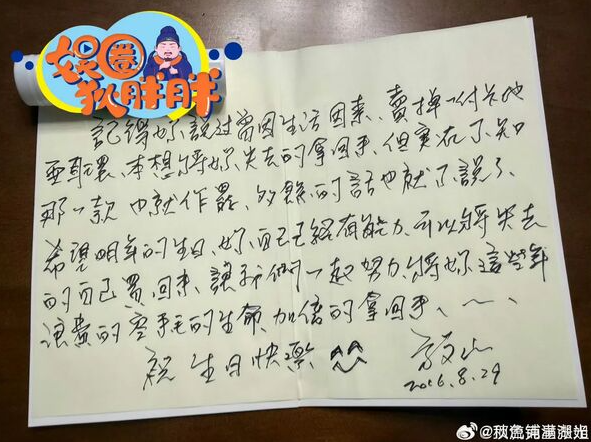 娱圈
狄胖胖
記得妳說過曾因生活因素、賣掉一付
耳環、本想將妳失去的拿回來、但實在不知
那一款 也就作罷、多餘的話也就不說了
希望明年的生日、妳自己已經有能力、可以將失去
的自己買回來、讓我們一起努力、將妳這些年
浪費的 的生命、加倍的拿回來、
祝 生日快樂
2016.8.29
@猗凫铺潇潇姐